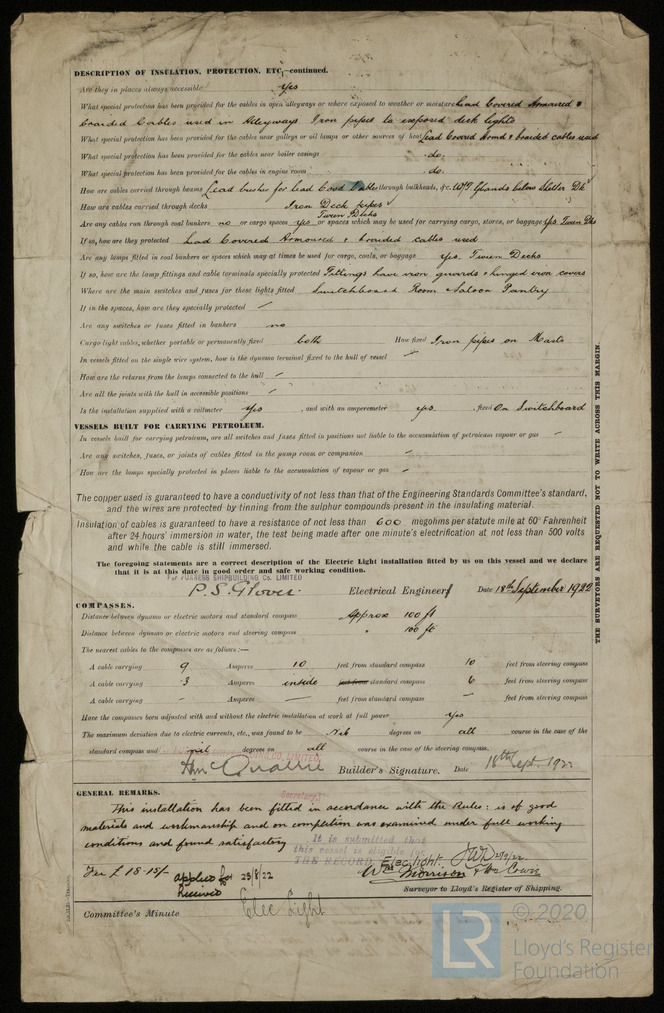 DESCRIPTION OF INSULATION, PROTECTION, ETC,—continued.
Are they in places always accessible Yes
What special protection has been provided for the cables in open alleyways or where exposed to weather or moisture Lead Covered Armoured &
braided Cables used in Alleyways Iron pipes to exposed deck lights
What special protection has been provided for the cables near galleys or oil lamps or other sources of heat Lead Covered Armd & braided cables used
What special protection has been provided for the cables near boiler casings do.
What special protection has been provided for the cables in engine room do.
How are cables carried through beams Lead bushes for lead Coverd Cables through bulkheads, &c. W/T Glands below Shelter Dk
How are cables carried through decks Iron Deck pipes
Tween Decks
Are any cables run through coal bunkers no or cargo spaces yes or spaces which may be used for carrying cargo, stores, or baggage Yes Tween Dks
If so, how are they protected Lead Covered Armoured & braided cables used
Are any lamps fitted in coal bunkers or spaces which may at times be used for cargo, coals, or baggage Yes, Tween Decks
If so, how are the lamp fittings and cable terminals specially protected Fittings have iron guards & hinged iron covers
Where are the main switches and fuses for these lights fitted Switchboard Room & Saloon Pantry
If in the spaces, how are they specially protected –
Are any switches or fuses fitted in bunkers no
Cargo light cables, whether portable or permanently fixed both How fixed Iron pipes on Masts
In vessels fitted on the single wire system, how is the dynamo terminal fixed to the hull of vessel –
How are the returns from the lamps connected to the hull –
Are all the joints with the hull in accessible positions –
Is the installation supplied with a voltmeter Yes , and with an amperemeter yes , fixed On Switchboard
VESSELS BUILT FOR CARRYING PETROLEUM.
In vessels built for carrying petroleum, are all switches and fuses fitted in positions not liable to the accumulation of petroleum vapour or gas –
Are any switches, fuses, or joints of cables fitted in the pump room or companion –
How are the lamps specially protected in places liable to the accumulation of vapour or gas –
THE SURVEYORS ARE REQUESTED NOT TO WRITE ACROSS THIS MARGIN.
The copper used is guaranteed to have a conductivity of not less than that of the Engineering Standards Committee's standard,
and the wires are protected by tinning from the sulphur compounds present in the insulating material.
Insulation of cables is guaranteed to have a resistance of not less than 600 megohms per statute mile at 60° Fahrenheit
after 24 hours' immersion in water, the test being made after one minute's electrification at not less than 500 volts
and while the cable is still immersed.
The foregoing statements are a correct description of the Electric Light installation fitted by us on this vessel and we declare
that it is at this date in good order and safe working condition.
For FURNESS SHIPBUILDING CO. LIMITED
P. S. Glover. Electrical Engineer Date 18th September 1922
COMPASSES.
Distance between dynamo or electric motors and standard compass Approx 100 ft
Distance between dynamo or electric motors and steering compass " 100 ft
The nearest cables to the compasses are as follows:—
A cable carrying 9 Amperes 10 feet from standard compass 10 feet from steering compass
A cable carrying 3 Amperes inside feet from standard compass 6 feet from steering compass
A cable carrying – Amperes – feet from standard compass – feet from steering compass
Have the compasses been adjusted with and without the electric installation at work at full power Yes
The maximum deviation due to electric currents, etc., was found to be Nil degrees on all course in the case of the
standard compass and nil degrees on all course in the case of the steering compass.
CO. LIMITED.
Builder's Signature. Date 18th Sept. 1922
Secretary
GENERAL REMARKS.
This installation has been fitted in accordance with the Rules: is of good
materials and workmanship and on completion was examined under full working
conditions and found satisfactory
It is submitted that
this vessel is eligible for
THE RECORD Elec light. JWD
Fee £ 18-15/- applied for 23/8/22
Received
Wm Morrison
Surveyor to Lloyd's Register of Shipping.
Committee's Minute Elec Light
© 2020
LR
Lloyd's Register
Foundation